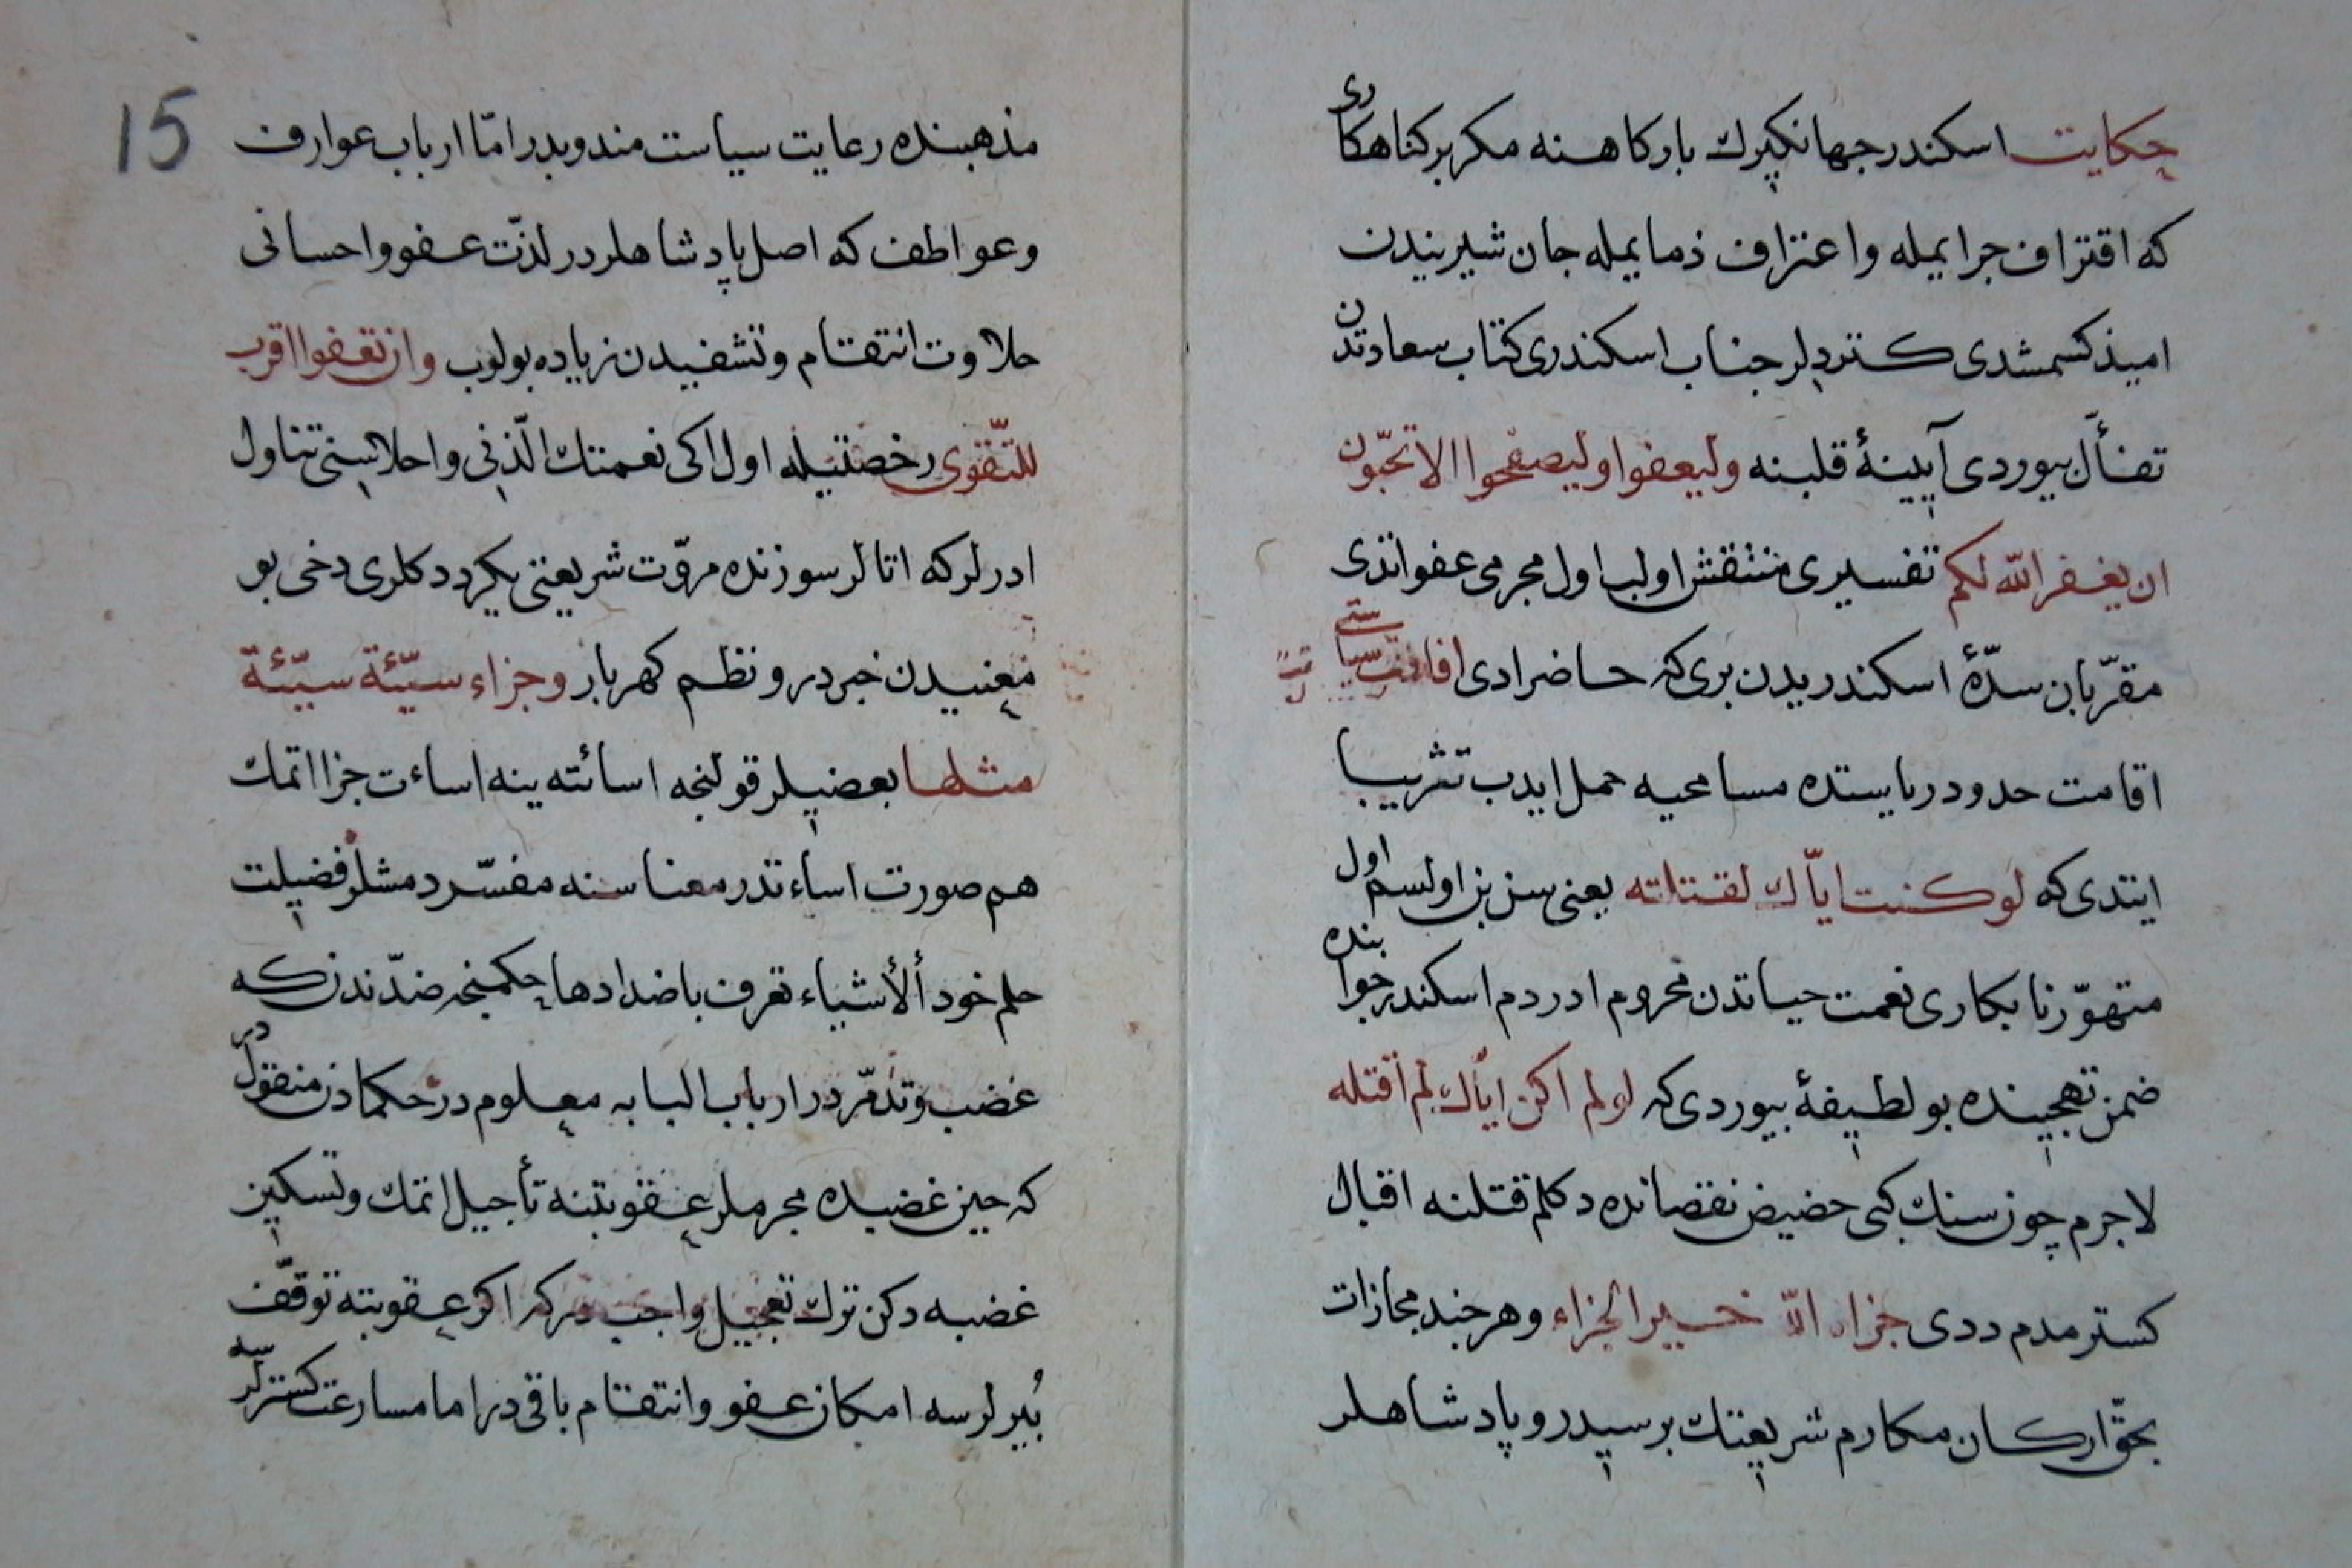 حكايت اسكندر جهانكيرك باركاهنه مكر بر كناهكاری
كه اقتراف جرايمله واعتراف ذمايمله جان شيريندن
اميذ كسمشدی كتردلر جناب اسكندری كتاب سعادتدن
تفأّل بيوردی آيينهٔ قلبنه وليعفوا وليصفحوا الا تحبّون
ان يغفر الله لكم تفسيری منتقش اولب اول مجرمی عفو اتدی
مقرّبان سدّهٔ اسكندريدن بری كه حاضر ادی
اقامت حدود رياستده مسامحيه حمل ايدب تثريبا
ايتدی كه لو كنت ايّاك لقتلته يعنی سز بن اولسم اول
متهوّر نابكاری نعمت حياتدن محروم ادردم اسكندر جوابنده
ضمن تهجينده بو لطيفهٔ بيوردی كه لو لم اكن ايّاك لم اقتله
لاجرم چون سنك كبی حضيض نقصانده دكلم قتلنه اقبال
كسترمدم ددی جزاه الله خير الجزاء وهر چند مجازات
بحقّ اركان مكارم شريعتك برسيدر و پادشاهلر
15
مذهبنده رعايت سياست مندوبدر امّا ارباب عوارف
وعواطف كه اصل پادشاهلردر لذّت عفو واحسانی
حلاوت انتقام وتشفيدن زياده بولوب وان تعفوا اقرب
للتّقوی رخصتيله اول اكی نعمتك الذّنی واحلاسنی تناول
ادرلر كه اتالر سوزنده مروّت شريعتی يكرددكلری دخی بو
معنيدن خبردر و نظم كهربار وجزاء سيّئة سيّئة
مثلها بعضيلر قولنجه اسائته ينه اساءت جزا اتمك
هم صورت اساءتدر معناسنه مفسّردمشلر فضيلت
حلم خود ألأشياء تعرف باضدادها حكمنجه ضدّندن كه
غضب وتذمّردر ارباب البابه معلومدر حكمادن منقولدر
كه حين غضبده مجرملر عقوبتنه تأجيل اتمك وتسكين
غضبه دكن ترك تعجيل واجب در كه اكر عقوبته توقّف
بُيرلرسه امكان عفو وانتقام باقی در اما مسارعت كسترلرسه